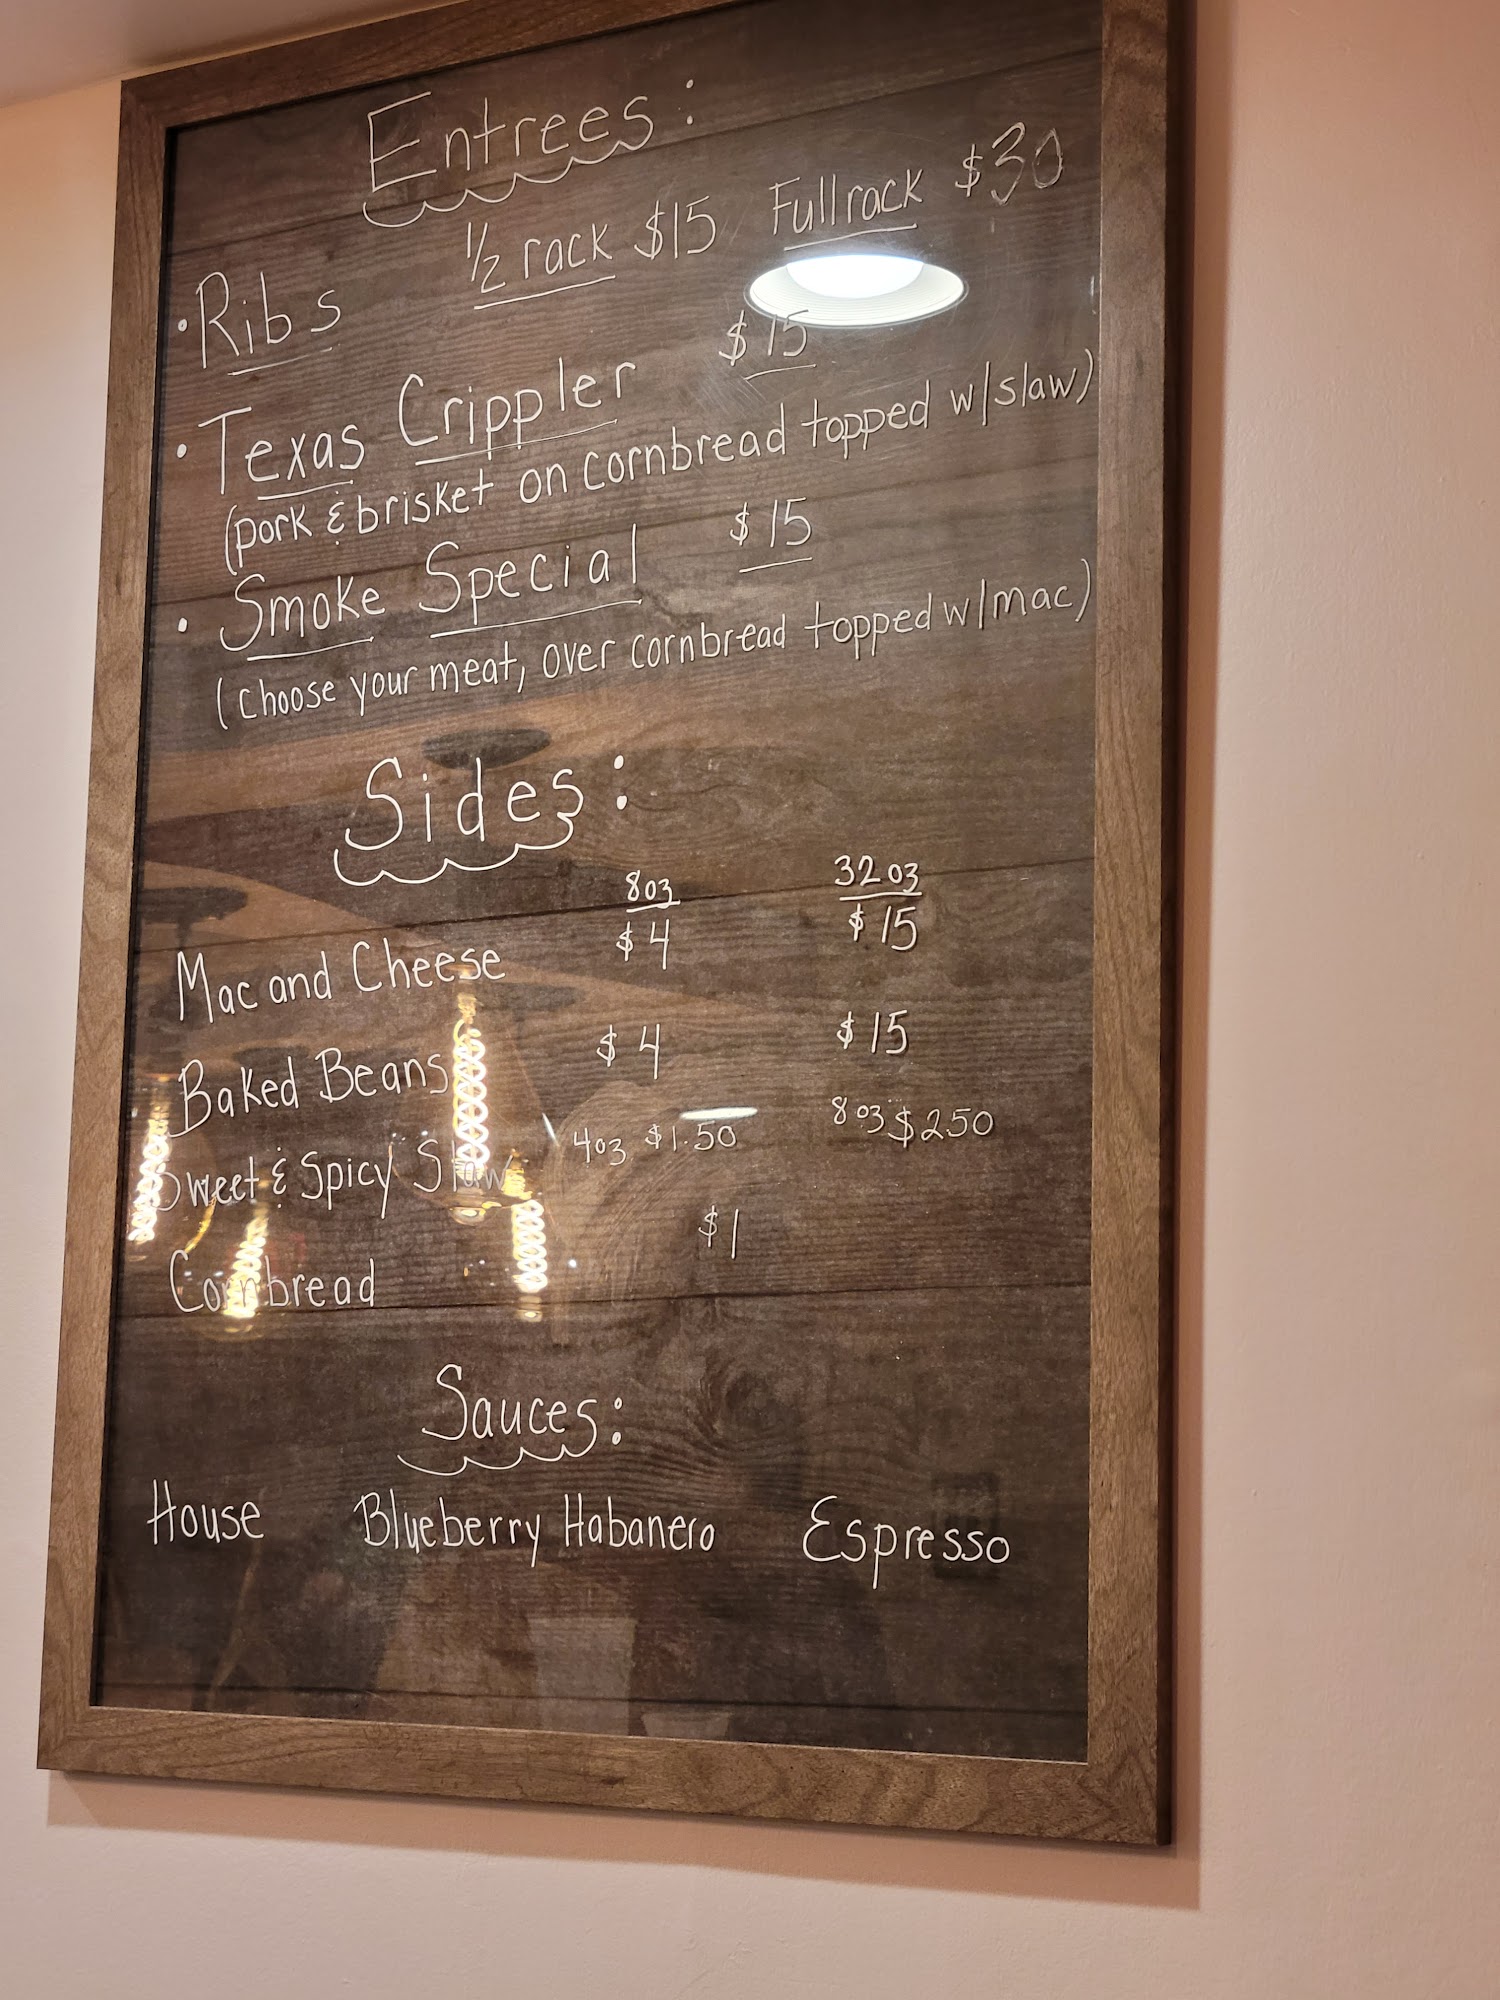 Entrees:
• Ribs 1/2 rack $15 Full rack $30
• Texas Crippler $15
(pork & brisket on cornbread topped w/slaw)
• Smoke Special $15
(choose your meat, over cornbread topped w/mac)
Sides:
8oz 32oz
Mac and Cheese $4 $15
Baked Beans $4 $15
Sweet & Spicy Slaw 4oz $1.50 8oz $250
Cornbread $1
Sauces:
House Blueberry Habanero Espresso